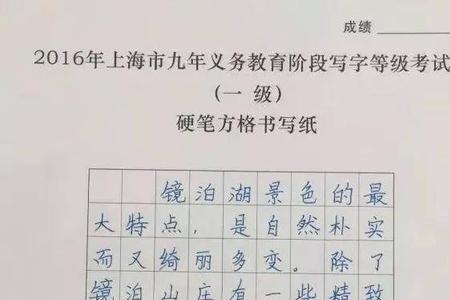 成绩
2016年上海市九年义务教育阶段写字等级考试
(一 级)
硬笔方格书写纸
镜泊湖景色的最
大特点，是自然朴实
而又绮丽多变。除了
镜泊山庄有一些精致